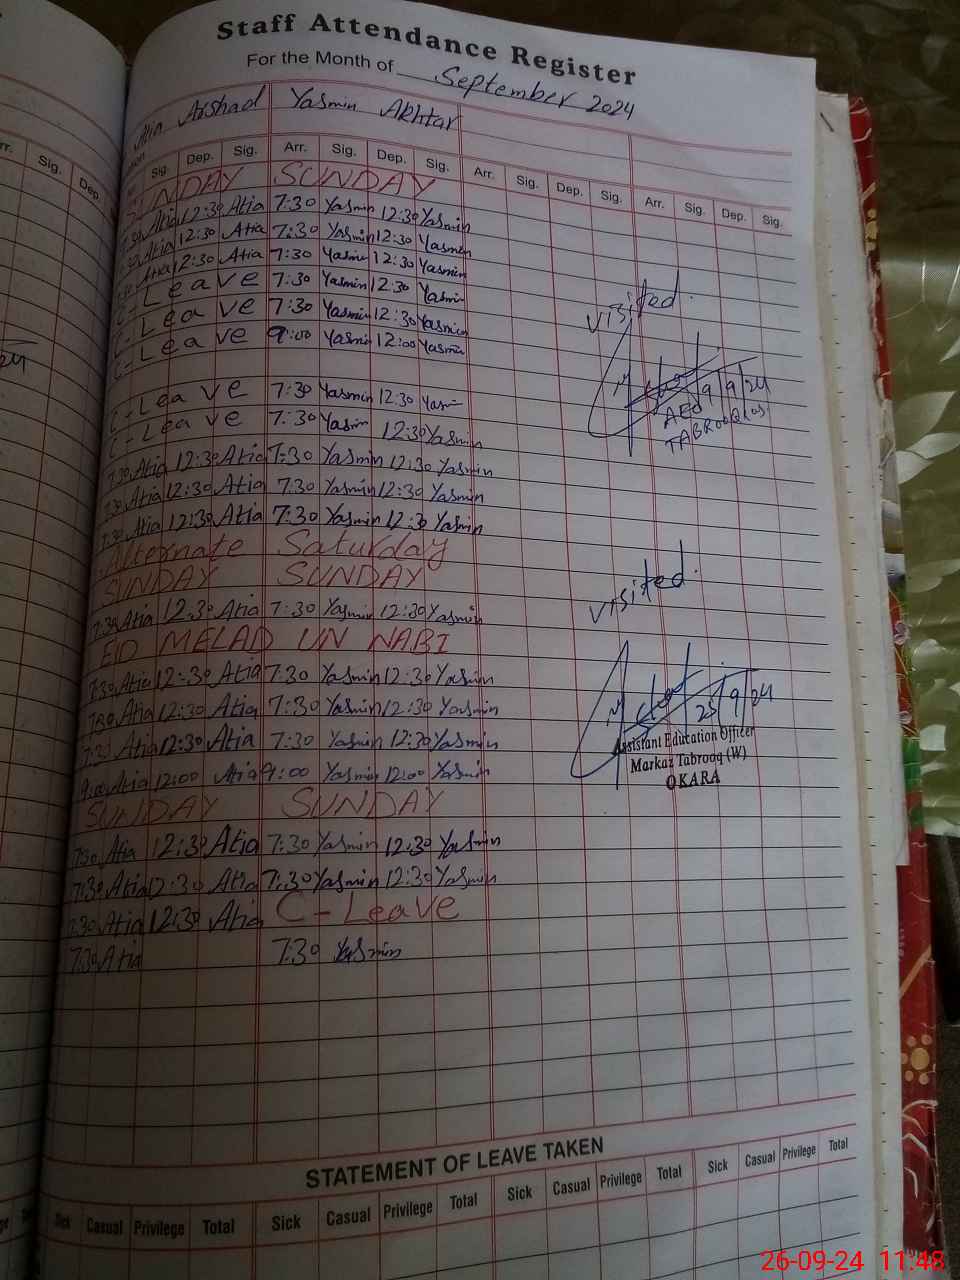 Staff Attendance Register
For the Month of September 2024
Arshad Yasmin Akhtar
Sig. Dep. Sig. Arr. Sig. Dep. Sig. Arr. Sig. Dep. Sig. Arr. Sig. Dep. Sig.
SUNDAY SUNDAY
7:30 Atia 12:30 Atia 7:30 Yasmin 12:30 Yasmin
7:30 Atia 12:30 Atia 7:30 Yasmin 12:30 Yasmin
7:30 Atia 12:30 Atia 7:30 Yasmin 12:30 Yasmin
C-Leave 7:30 Yasmin 12:30 Yasmin
C-Leave 7:30 Yasmin 12:30 Yasmin
C-Leave 9:00 Yasmin 12:00 Yasmin
visited.
C-Leave 7:30 Yasmin 12:30 Yasmin
9/9/24
C-Leave 7:30 Yasmin 12:30 Yasmin
AEO
7:30 Atia 12:30 Atia 7:30 Yasmin 12:30 Yasmin
7:30 Atia 12:30 Atia 7:30 Yasmin 12:30 Yasmin
7:30 Atia 12:30 Atia 7:30 Yasmin 12:30 Yasmin
Alternate Saturday
SUNDAY SUNDAY
7:30 Atia 12:30 Atia 7:30 Yasmin 12:30 Yasmin
visited.
EID MELAD UN NABI
7:30 Atia 12:30 Atia 7:30 Yasmin 12:30 Yasmin
7:30 Atia 12:30 Atia 7:30 Yasmin 12:30 Yasmin
25/9/24
7:30 Atia 12:30 Atia 7:30 Yasmin 12:30 Yasmin
Assistant Education Officer
Markaz Tabrooq (W)
OKARA
9:00 Atia 12:00 Atia 9:00 Yasmin 12:00 Yasmin
SUNDAY SUNDAY
7:30 Atia 12:30 Atia 7:30 Yasmin 12:30 Yasmin
7:30 Atia 12:30 Atia 7:30 Yasmin 12:30 Yasmin
7:30 Atia 12:30 Atia C-Leave
7:30 Atia 7:30 Yasmin
STATEMENT OF LEAVE TAKEN
Sick Casual Privilege Total Sick Casual Privilege Total Sick Casual Privilege Total Sick Casual Privilege Total
26-09-24 11:48